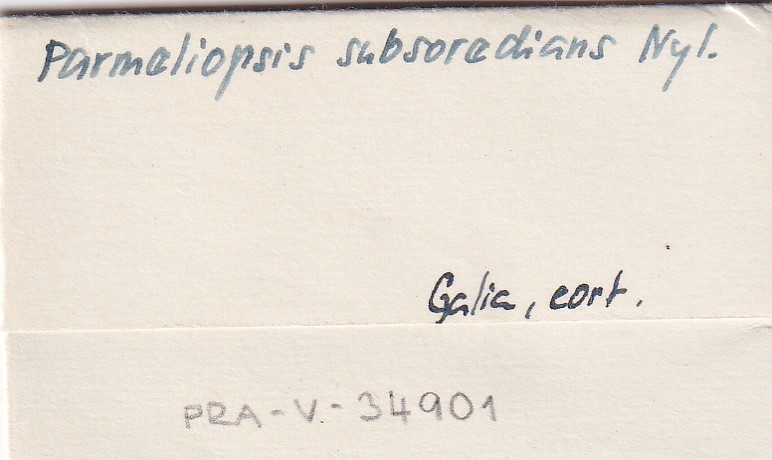 Parmeliopsis subsoredians Nyl.
Galia, cort.
PRA-V-34901